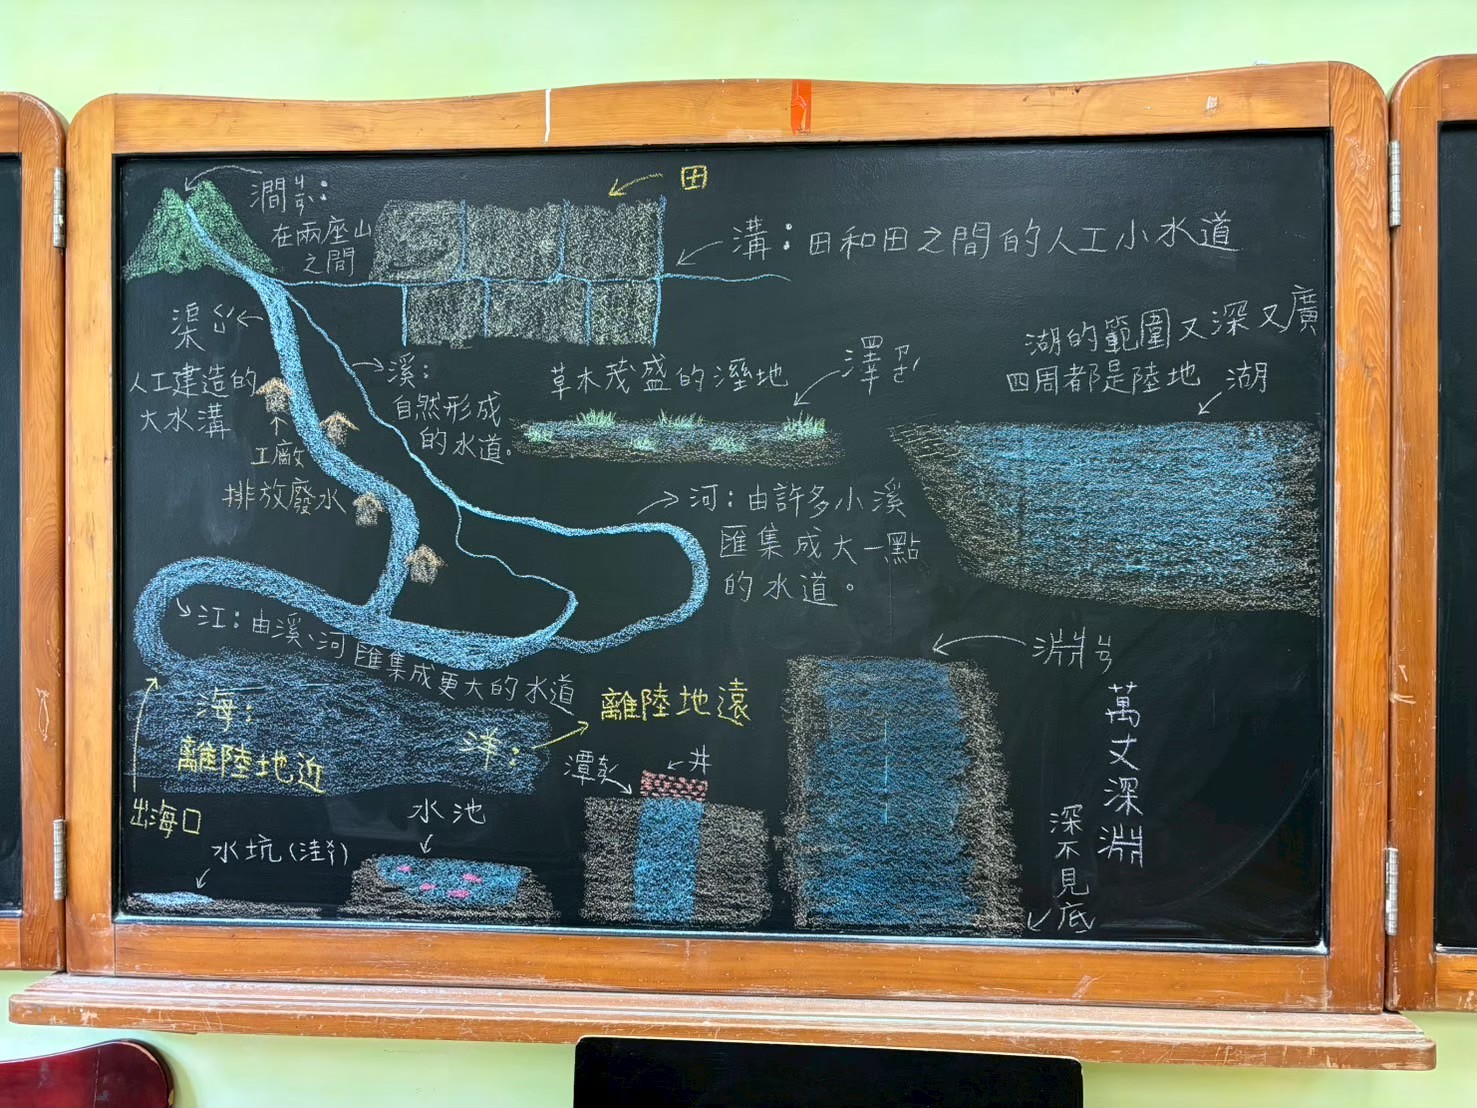 澗ㄐㄧㄢˋ:
在兩座山
之間
田
溝:田和田之間的人工小水道
渠ㄑㄩˊ
人工建造的
大水溝
溪:
自然形成
的水道。
草木茂盛的溼地
澤ㄗㄜˊ
湖的範圍又深又廣
四周都是陸地
湖
工廠
排放廢水
河:由許多小溪
匯集成大一點
的水道。
江:由溪、河匯集成更大的水道
海:
離陸地近
洋:
離陸地遠
出海口
淵ㄩㄢ
萬丈深淵
深不見底
潭ㄊㄢˊ
井
水池
水坑(洼ㄨㄚ)